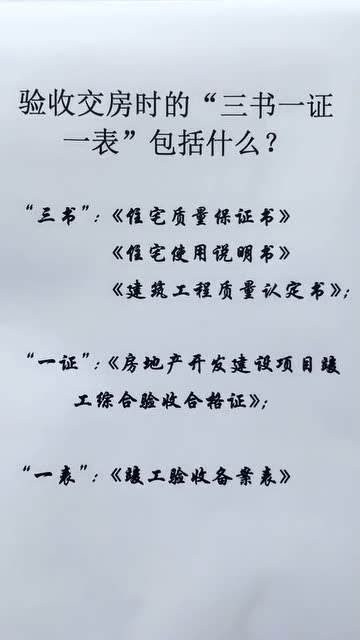 验收交房时的“三书一证
一表”包括什么？
“三书”：《住宅质量保证书》
《住宅使用说明书》
《建筑工程质量认定书》；
“一证”：《房地产开发建设项目竣
工综合验收合格证》；
“一表”：《竣工验收备案表》